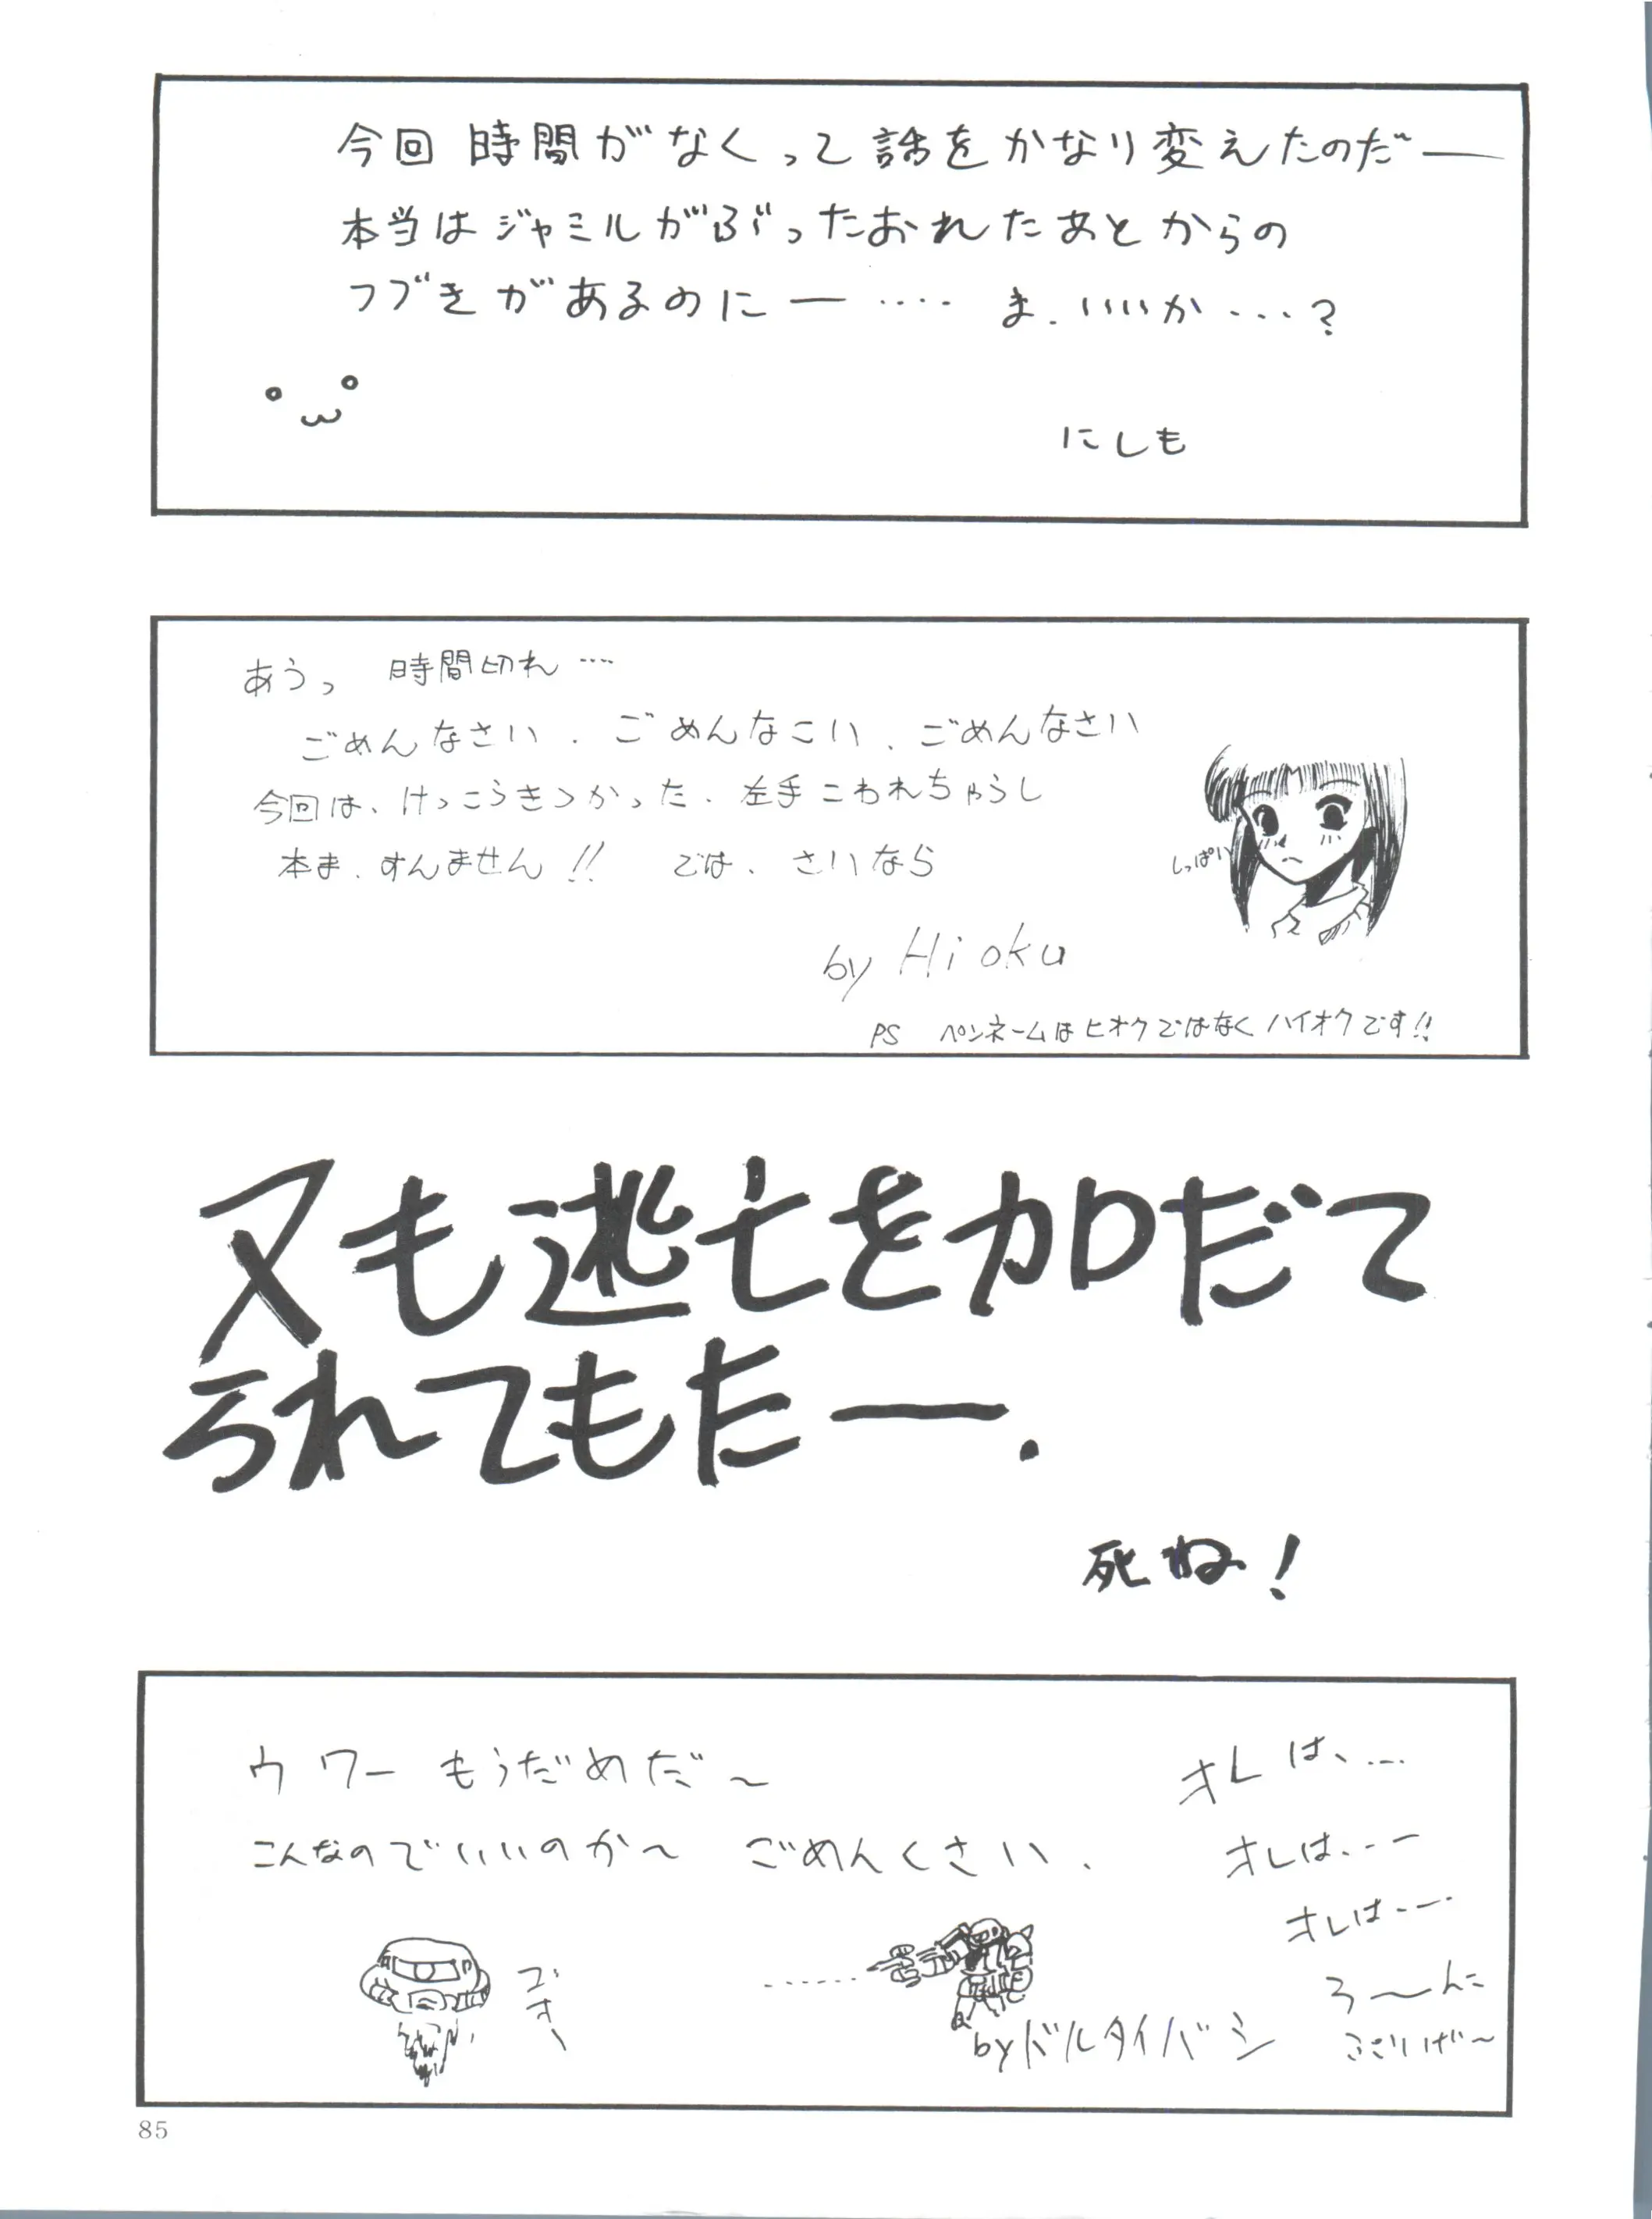 今回 時間がなくって話をかなり変えたのだー
本当はジャミルがぶったおれたあとからの
つづきがあるのにー ‥‥ ま. いいか…?
にしも
あうっ 時間切れ ‥‥
ごめんなさい. ごめんなこい. ごめんなさい
今回は、けっこうきつかった. 左手こわれちゃうし
本ま. すんません!! では. さいなら
しっぱい
by Hioku
PS ペンネームはヒオクではなくハイオクです!!
又も逃亡をカロだて
られてもたー.
死ね!
ウワー もうだめだ〜
こんなのでいいのか〜 ごめんくさい.
オレは、…
オレは…
オレは…
ゴォー
by ドルタイバーン
85